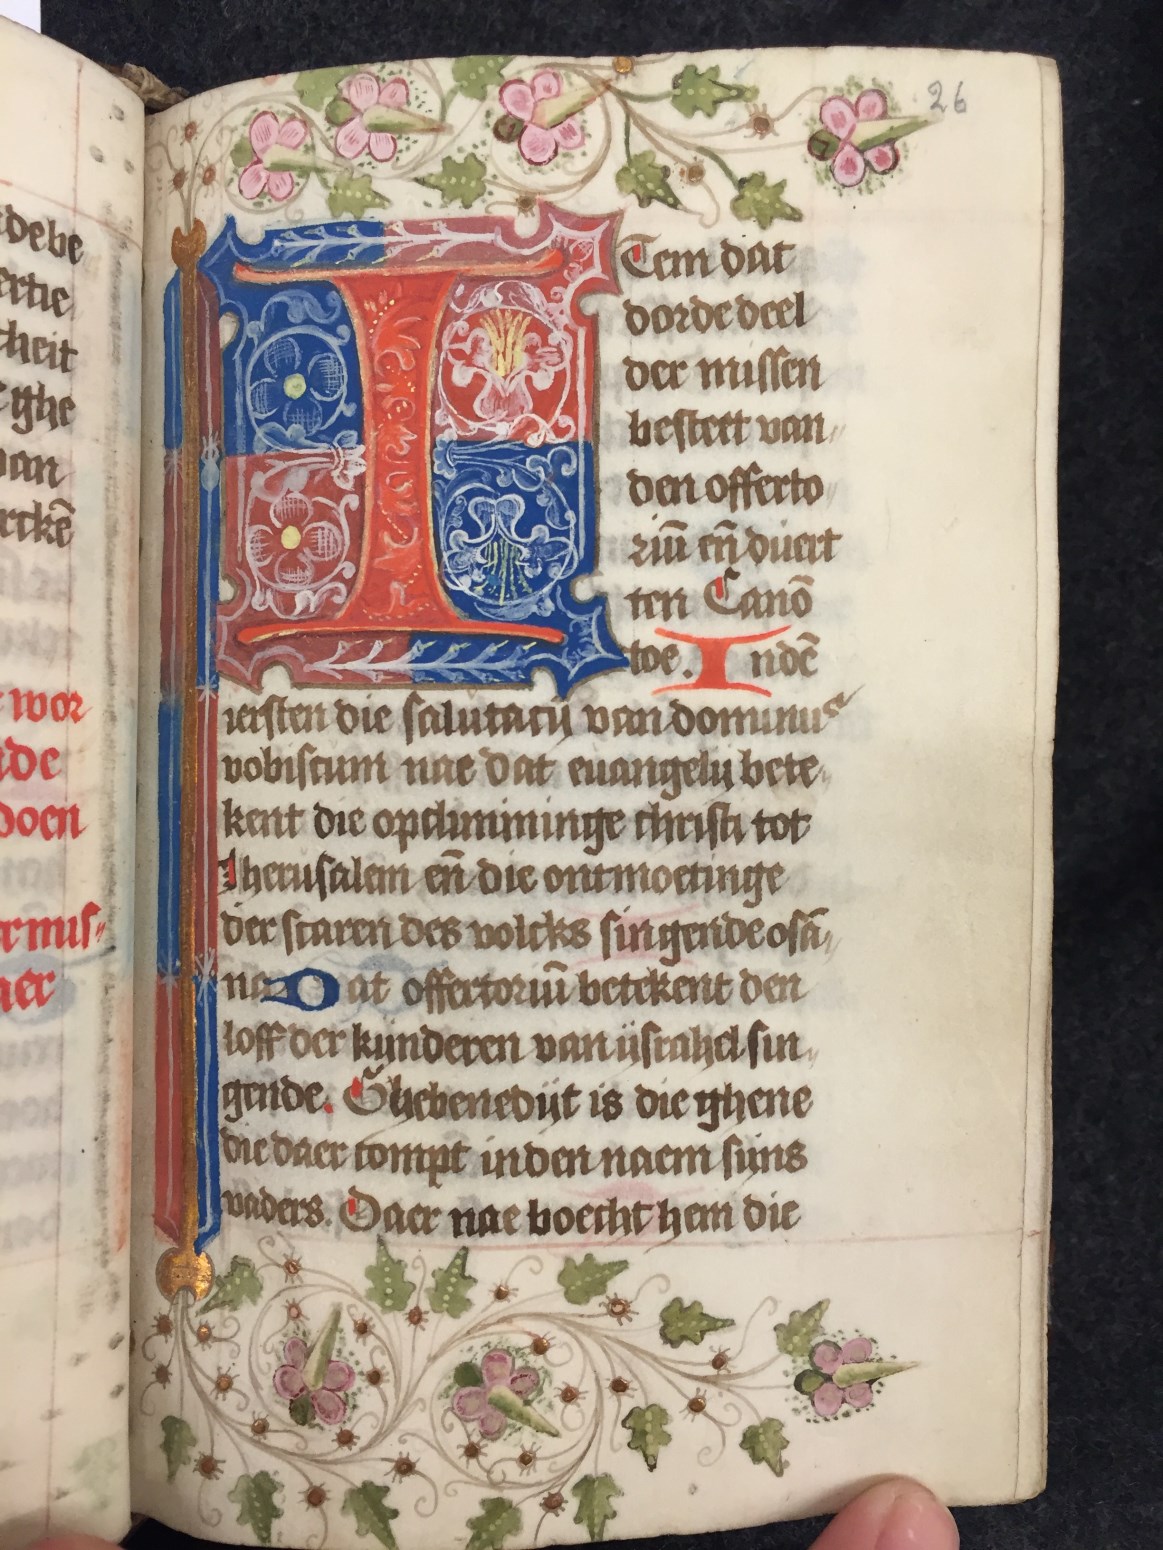 debe
ertie
cheit
ghe
van
rckē
wor
de
doen
mis
er
26
I
Tem dat
dorde deel
der missen
bestett van
den offerto
riuͫ en̄ duert
ten Canō
toe. Indē
iersten die salutacij van dominus
vobiscum nae dat euangelij bete
kent die opclimminge christi tot
Iherusalem en̄ die ontmoetinge
der scaren des volcks singende osā
na Dat offertoriū betekent den
loff der kijnderen van ijsrahel sin
gende. Ghebenedijt is die ghene
die daer compt in den naem sijns
vaders. Daer nae boecht hem die